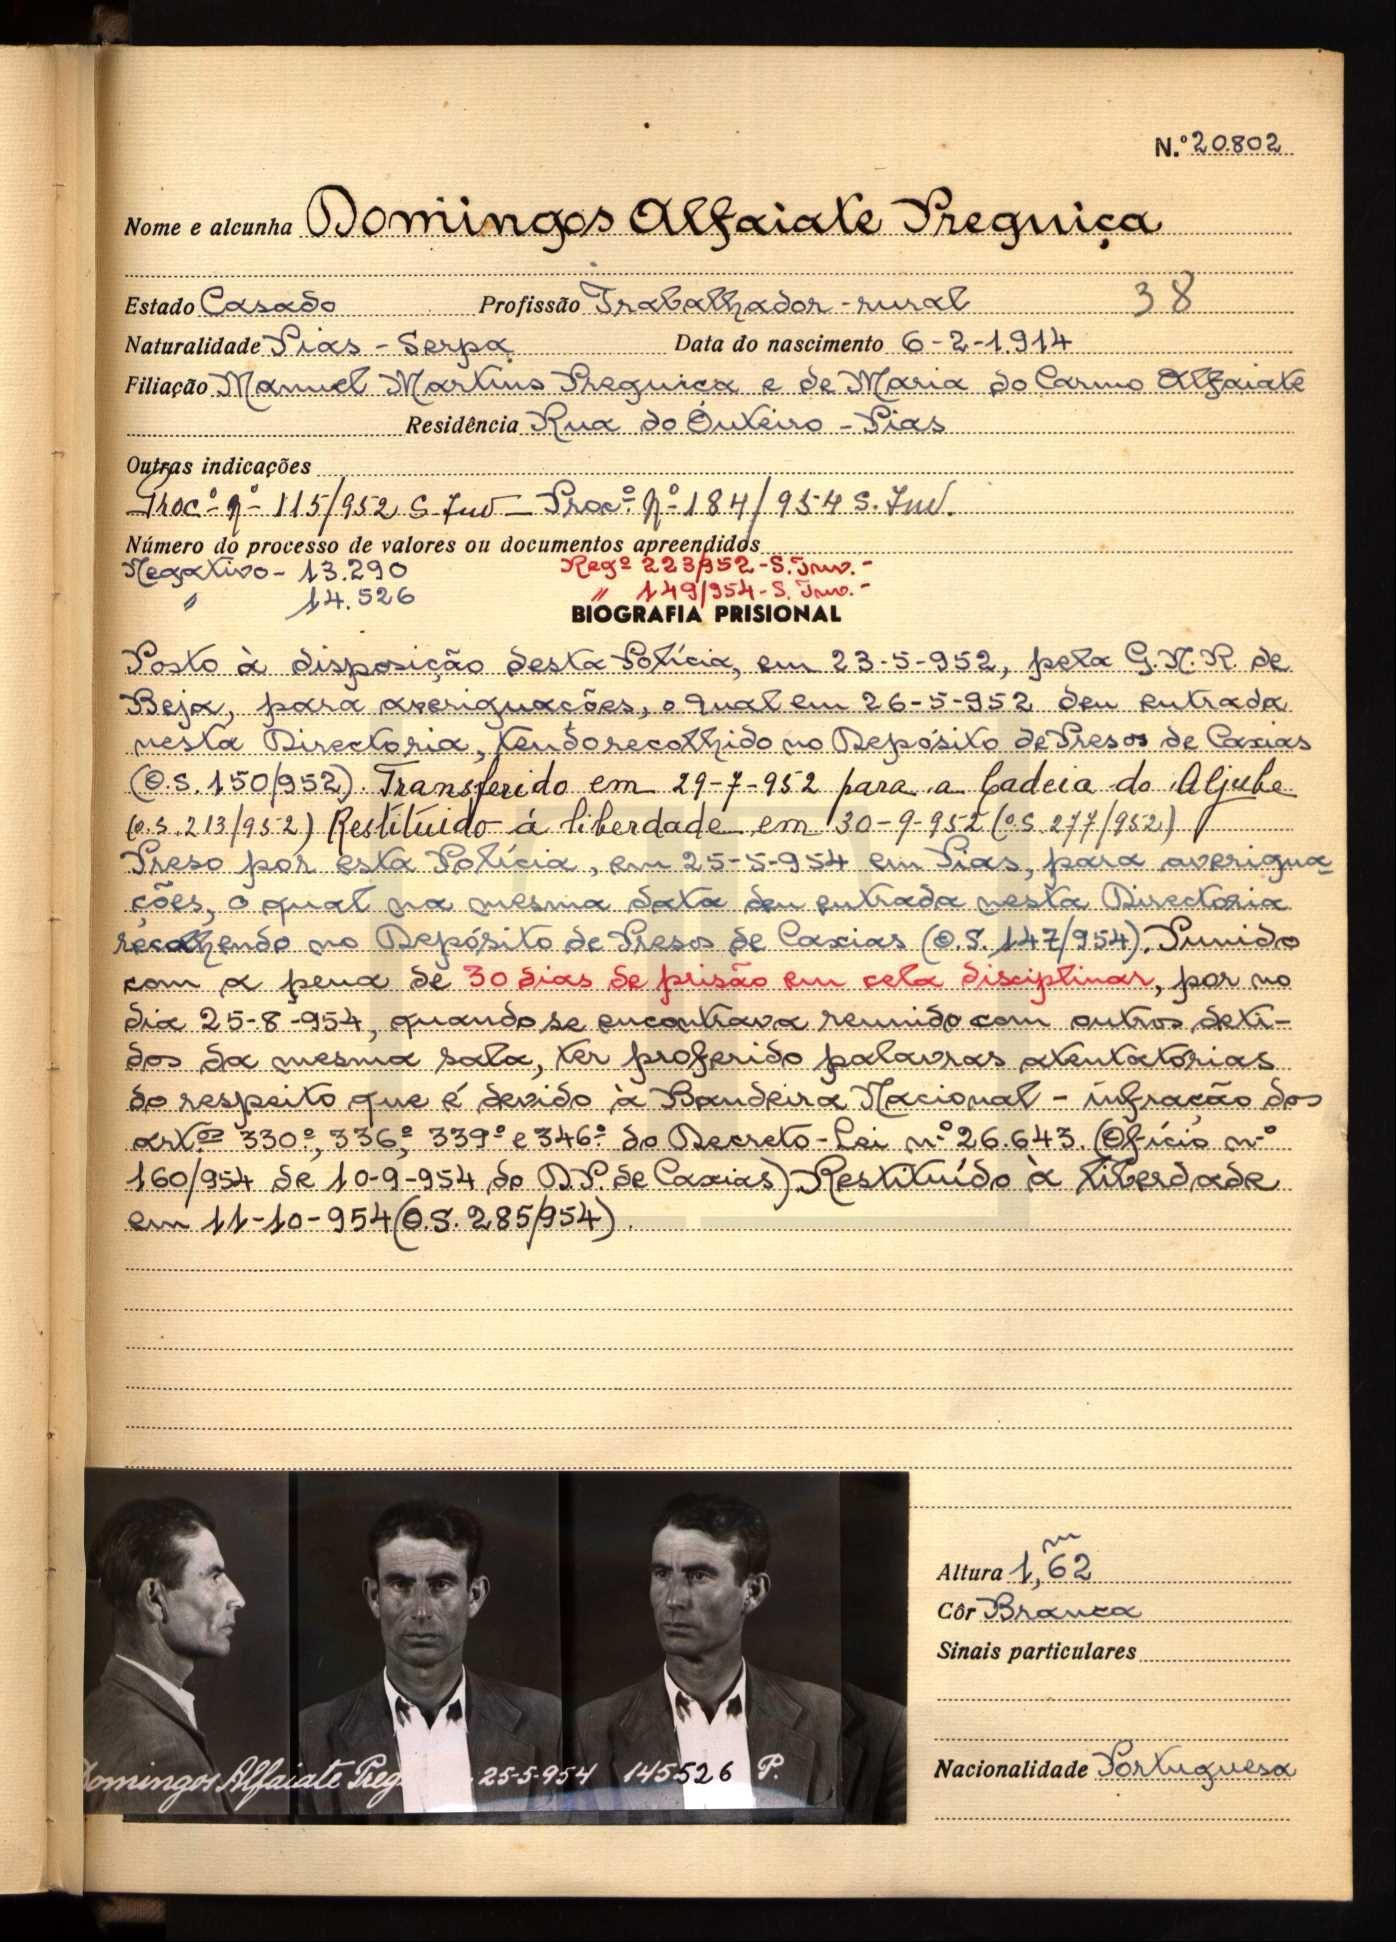 N.º 20.802
Nome e alcunha Domingos Alfaiate Preguiça
Estado Casado Profissão Trabalhador-rural 38
Naturalidade Pias - Serpa Data do nascimento 6-2-1.914
Filiação Manuel Martins Preguiça e de Maria do Carmo Alfaiate
Residência Rua do Outeiro - Pias
Outras indicações
Proc.º n.º 115/952 S. Inv — Proc.º n.º 184/954 S. Inv.
Número do processo de valores ou documentos apreendidos
Negativo - 13.290 Reg.º 223/952 - S. Inv. -
" 14.526 " 149/954 - S. Inv. -
BIOGRAFIA PRISIONAL
Posto à disposição desta Polícia, em 23-5-952, pela G.N.R. de
Beja, para averiguações, o qual em 26-5-952 deu entrada
nesta Directoria, tendo recolhido no Depósito de Presos de Caxias
(O.S. 150/952). Transferido em 29-7-952 para a Cadeia do Aljube
(O.S. 213/952) Restituido á liberdade em 30-9-952 (O.S. 277/952)
Preso por esta Polícia, em 25-5-954 em Pias, para averigua-
ções, o qual na mesma data deu entrada nesta Directoria
recolhendo no Depósito de Presos de Caxias (O.S. 147/954). Punido
com a pena de 30 dias de prisão em cela disciplinar, por no
dia 25-8-954, quando se encontrava reunido com outros deti-
dos da mesma sala, ter proferido palavras atentatórias
do respeito que é devido à Bandeira Nacional - infracção dos
art.os 330.º, 336.º, 339.º e 346.º do Decreto-Lei n.º 26.643. (Ofício n.º
160/954 de 10-9-954 do D.P. de Caxias). Restituído à liberdade
em 11-10-954 (O.S. 285/954).
Altura 1,m62
Côr Branca
Sinais particulares
Nacionalidade Portuguesa
Domingos Alfaiate Preg 25-5-954 145526 P.